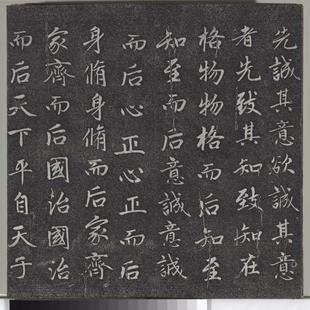 先誠其意欲誠其意
者先致其知致知在
格物物格而后知至
知至而后意誠意誠
而后心正心正而后
身脩身脩而后家齊
家齊而后國治國治
而后天下平自天子